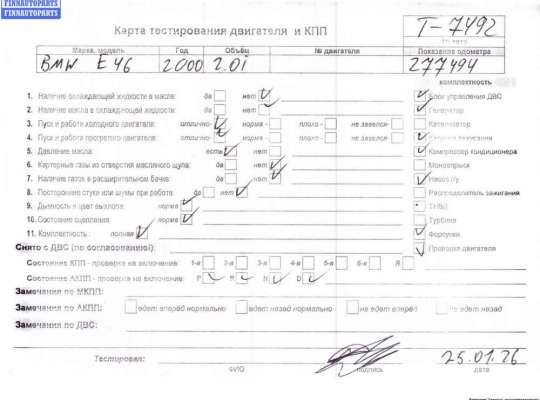 FINNAUTOPARTS
FINNAUTOPARTS
Карта тестирования двигателя и КПП
Т-7492
Марка, модель Год Объём № двигателя Показание одометра
BMW E46 2000 2.0i 277494
комплектность
1. Наличие охлаждающей жидкости в масле: да нет Блок управления ДВС
2. Наличие масла в охлаждающей жидкости: да нет Генератор
3. Пуск и работа холодного двигателя: отлично- норма - плохо - не завелся- Катализатор
4. Пуск и работа прогретого двигателя: отлично- норма - плохо - не завелся- зажигания
5. Давление масла: есть нет Компрессор кондиционера
6. Картерные газы из отверстия масляного щупа: да нет Моновпрыск
7. Наличие газов в расширительном бачке: да нет Насос гу
8. Посторонние стуки или шумы при работе: да нет Распределитель зажигания
9. Дымность и цвет выхлопа: норма ТНВД
10. Состояние сцепления: норма Турбина
11. Комплектность: полная Форсунки
Снято с ДВС (по согласованию): Проводка двигателя
Состояние КПП - проверка на включение: 1-я 2-я 3-я 4-я 5-я 6-я R
Состояние АКПП - проверка на включение: P R N D
Замечания по МКПП:
Замечания по АКПП: едет вперёд нормально едет назад нормально не едет вперёд не едет назад
Замечания по ДВС:
Тестировал: 25.01.26
ФИО подпись дата